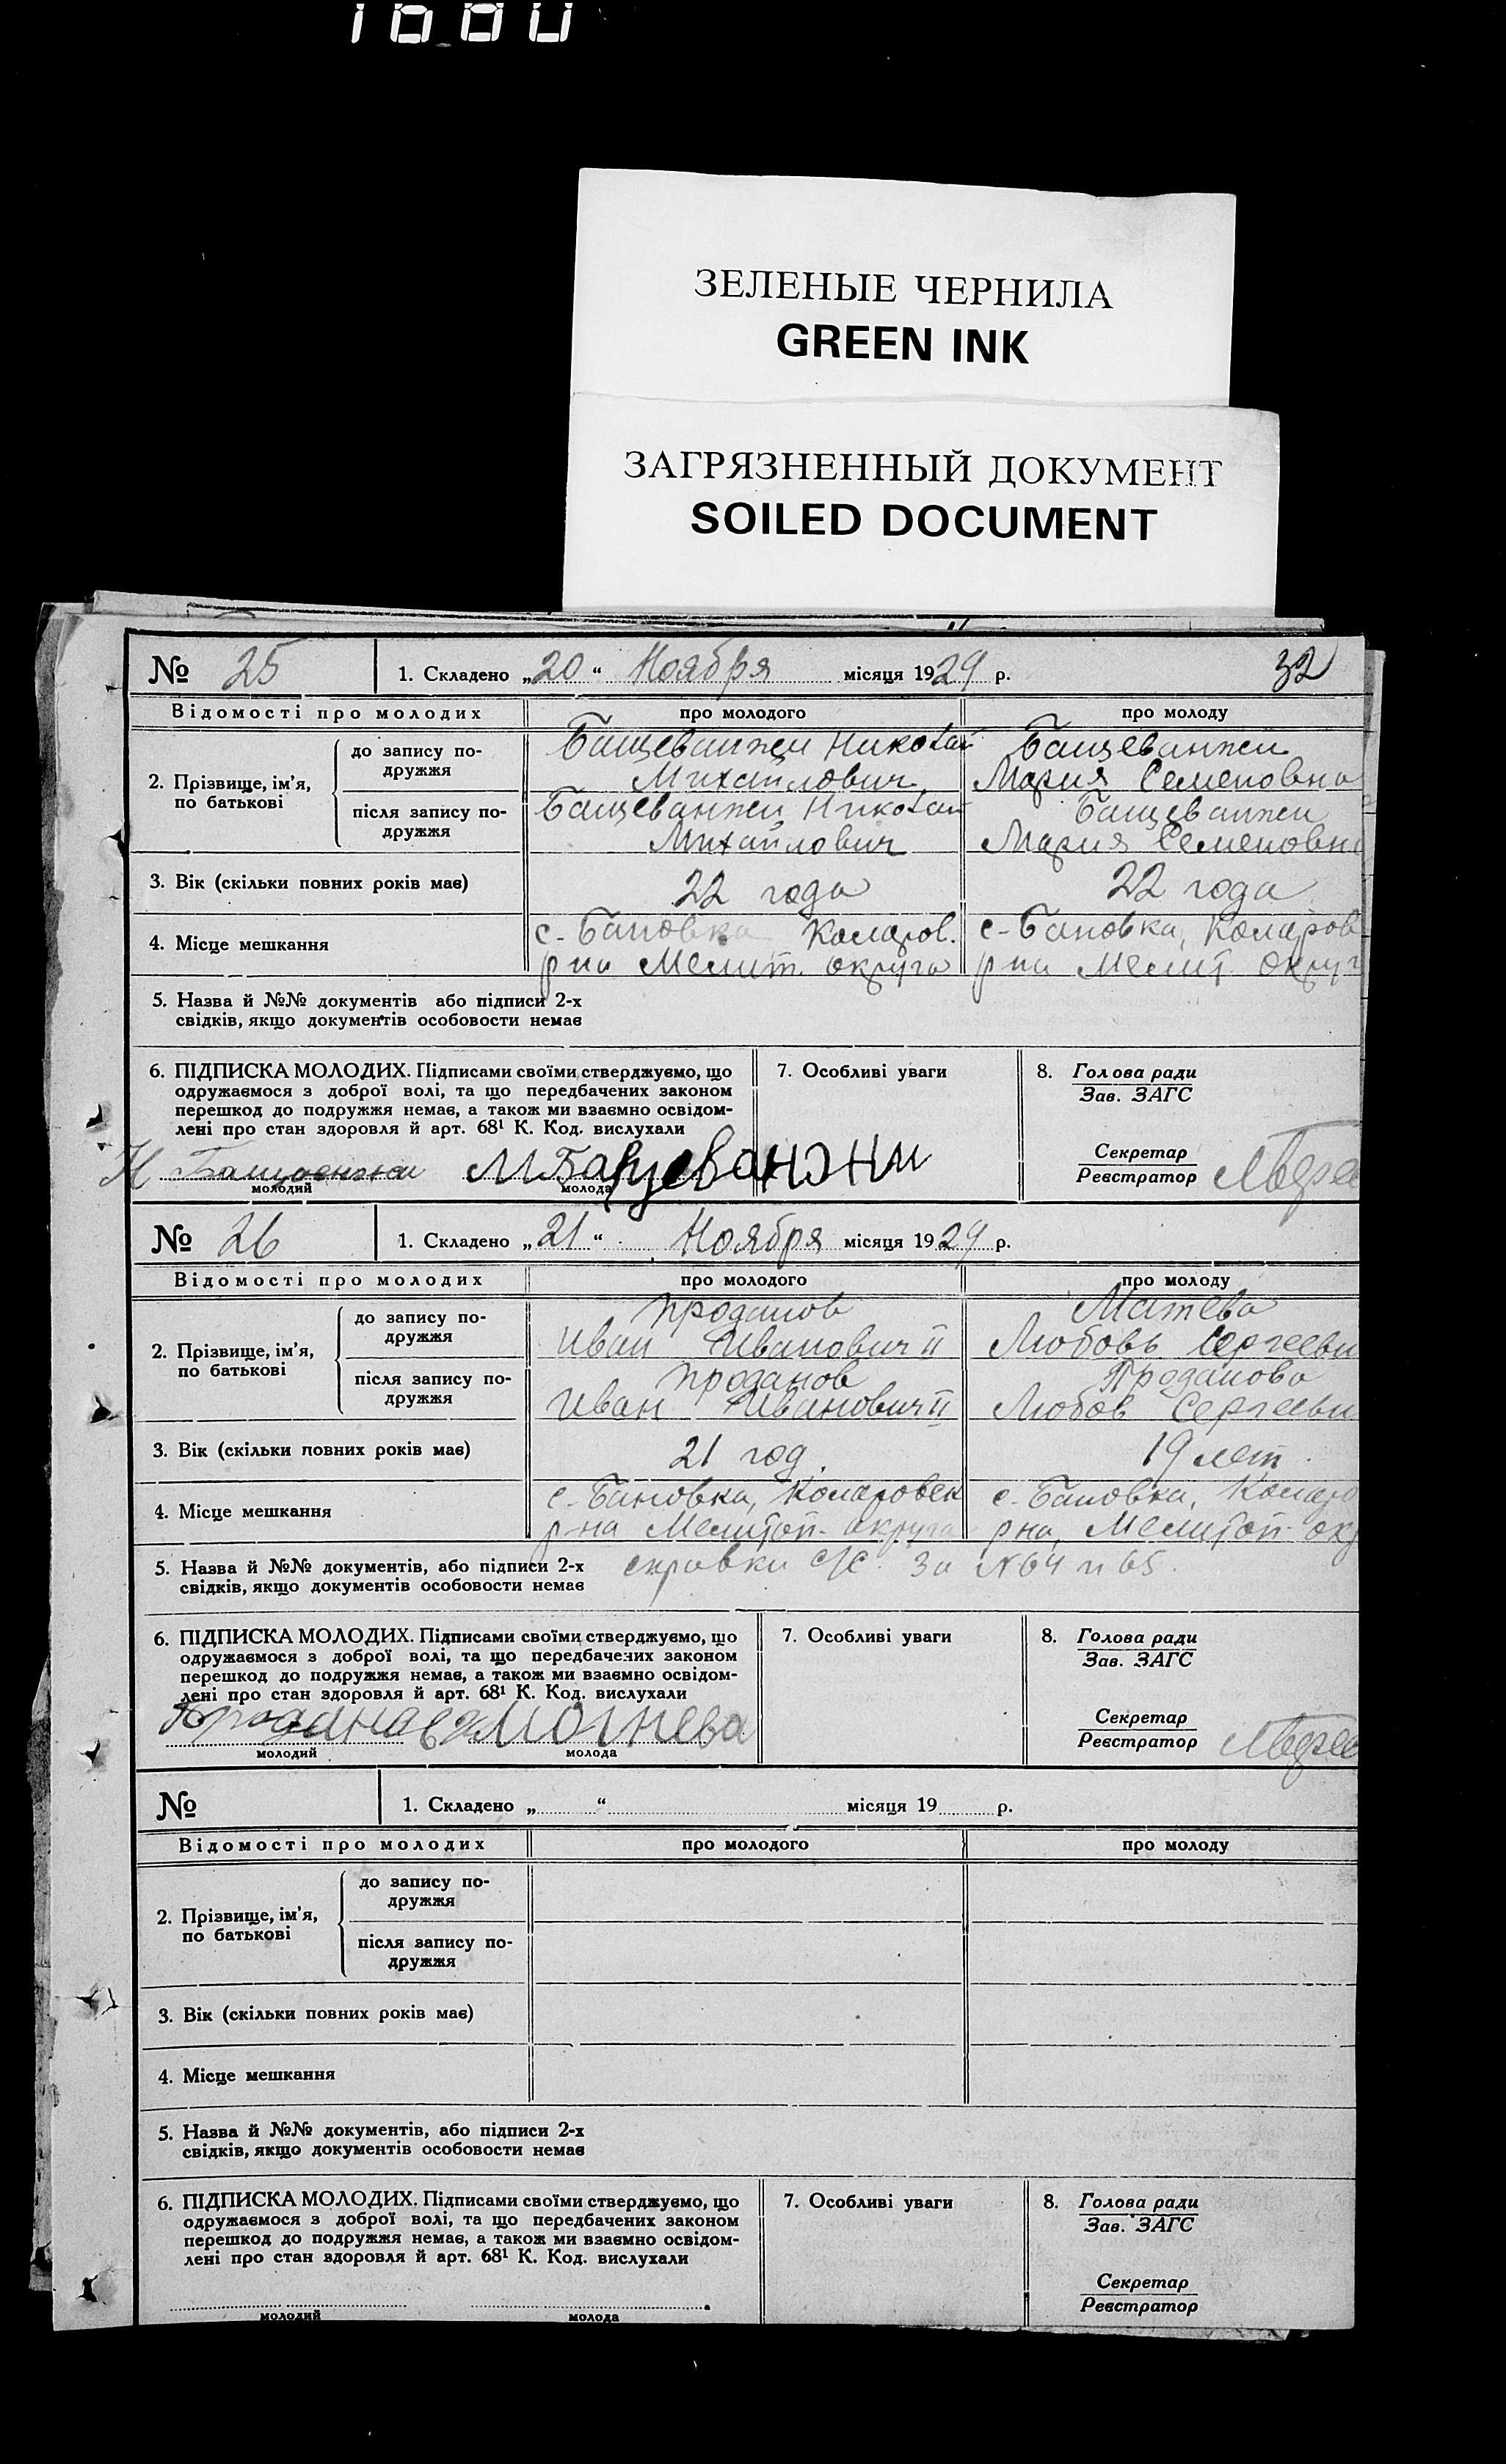 1680
ЗЕЛЕНЫЕ ЧЕРНИЛА
GREEN INK
ЗАГРЯЗНЕННЫЙ ДОКУМЕНТ
SOILED DOCUMENT
№ 25 1. Складено „20“ Ноября місяця 1929 р. 32
Відомості про молодих про молодого про молоду
2. Прізвище, ім’я, по батькові
до запису по-дружжя
Бащеванжи Николай Бащеванжи
Михайлович Мария Семеновна
після запису по-дружжя
Бащеванжи Николай Бащеванжи
Михайлович Мария Семеновна
3. Вік (скільки повних років має) 22 года 22 года
4. Місце мешкання
с-Бановка Коларов. с-Бановка, Коларов
р на Мелит. округа р на Мелит округ
5. Назва й №№ документів або підписи 2-х
свідків, якщо документів особовости немає
6. ПІДПИСКА МОЛОДИХ. Підписами своїми стверджуємо, що 7. Особливі уваги 8. Голова ради
одружаємося з доброї волі, та що передбачених законом Зав. ЗАГС
перешкод до подружжя немає, а також ми взаємно освідом-
лені про стан здоровля й арт. 68¹ К. Код. вислухали
Секретар
Реєстратор
Н М Бащеванжи
молодий молода
№ 26 1. Складено „21“ Ноября місяця 1929 р.
Відомості про молодих про молодого про молоду
2. Прізвище, ім’я, по батькові
до запису по-дружжя
Проданов Матева
Иван Иванович II Любовь Сергеевн
після запису по-дружжя
Проданов Проданова
Иван Иванович II Любов Сергеевн
3. Вік (скільки повних років має) 21 год. 19 лет.
4. Місце мешкання
с-Бановка, Коларовск с-Бановка, Коларо
р-на Мелитоп-округа р на, Мелитоп-окр
5. Назва й №№ документів, або підписи 2-х справки с/с. За №64 и 65.
свідків, якщо документів особовости немає
6. ПІДПИСКА МОЛОДИХ. Підписами своїми стверджуємо, що 7. Особливі уваги 8. Голова ради
одружаємося з доброї волі, та що передбачених законом Зав. ЗАГС
перешкод до подружжя немає, а також ми взаємно освідом-
лені про стан здоровля й арт. 68¹ К. Код. вислухали
Секретар
Реєстратор
молодий молода
№ 1. Складено „ “ місяця 19 р.
Відомості про молодих про молодого про молоду
2. Прізвище, ім’я, по батькові
до запису по-дружжя
після запису по-дружжя
3. Вік (скільки повних років має)
4. Місце мешкання
5. Назва й №№ документів, або підписи 2-х
свідків, якщо документів особовости немає
6. ПІДПИСКА МОЛОДИХ. Підписами своїми стверджуємо, що 7. Особливі уваги 8. Голова ради
одружаємося з доброї волі, та що передбачених законом Зав. ЗАГС
перешкод до подружжя немає, а також ми взаємно освідом-
лені про стан здоровля й арт. 68¹ К. Код. вислухали
Секретар
Реєстратор
молодий молода